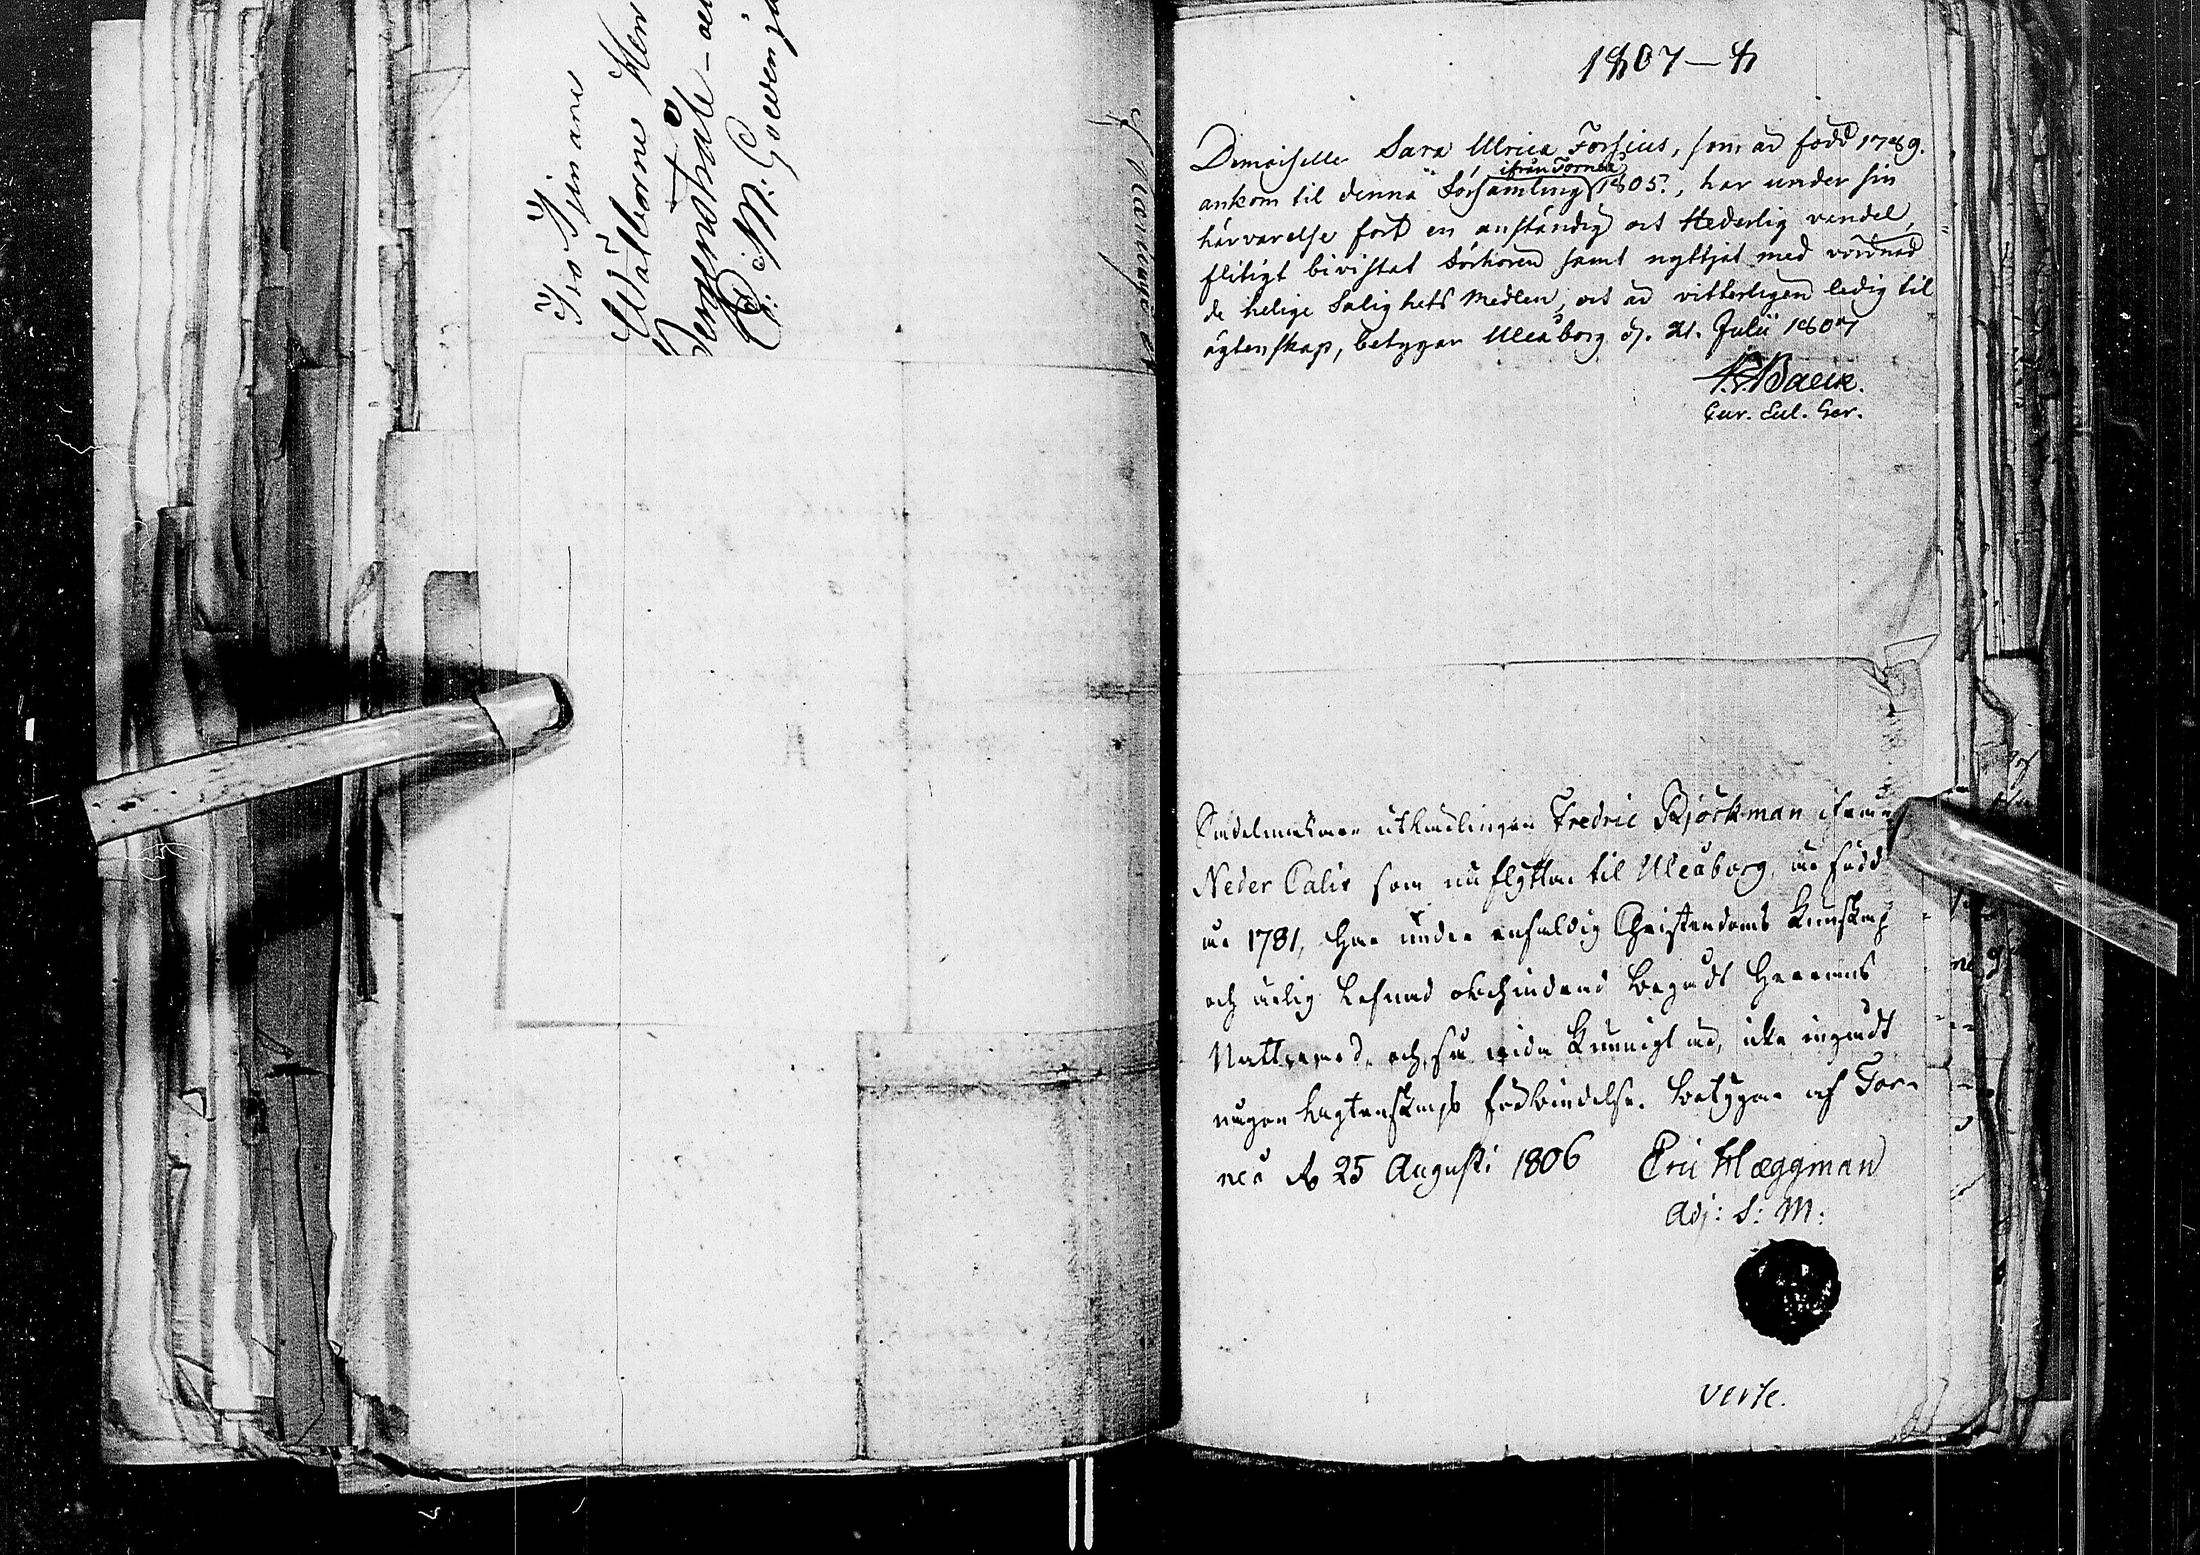 Pro Ijenare
Wälborne Herr
E: M: 
1807–8
Demoiselle Sara Ulrica Forsius, som är född 1789.
ankom til denna Församling ifrån Torneå 1805., har under sin
härvarelse fört en anständig och Hederlig vandel,
flitigt bivistat Förhören samt nyttjat med vördnad
de helige Salighets Medlen, och är vitterligen ledig til
ägtenskap, betygar Uleåborg d. 21. Julii 1807
Baeck.
Cur. Eul. Ger.
Sadelmakare utlärlingen Fredric Björkman ifrån
Neder Calix som nu flyttar til Uleåborg, är född
år 1781, har under enfaldig Christendoms Kunskap
och ärlig Lefnad oklandrad begådt Herrans
Nattvard, och så vida Kunnigt är, icke ingådt
någon Ecgtenskaps förbindelse. Betygar af Tor-
neå d. 25 Augusti 1806 Eric Hæggman
Adj: S: M:
verte.